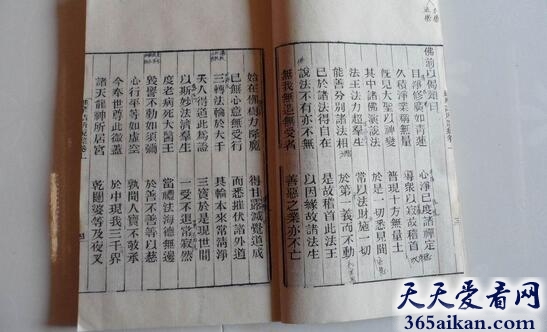 佛前以偈頌曰
目淨修廣如青蓮　心淨已度諸禪定
久積淨業稱無量　導衆以寂故稽首
既見大聖以神變　普現十方無量土
其中諸佛演說法　於是一切悉見聞
法王法力超羣生　常以法財施一切
能善分別諸法相　於第一義而不動
已於諸法得自在　是故稽首此法王
說法不有亦不無　以因緣故諸法生
無我無造無受者　善惡之業亦不亡
三
始在佛樹力降魔　得甘露滅覺道成
已無心意無受行　而悉摧伏諸外道
三轉法輪於大千　其輪本來常清淨
天人得道此為證　三寶於是現世間
以斯妙法濟羣生　一受不退常寂然
度老病死大醫王　當禮法海德無邊
毀譽不動如須彌　於善不善等以慈
心行平等如虛空　孰聞人寶不敬承
今奉世尊此微蓋　於中現我三千界
諸天龍神所居宮　乾闥婆等及夜叉
四
天天爱看网
365aikan.com